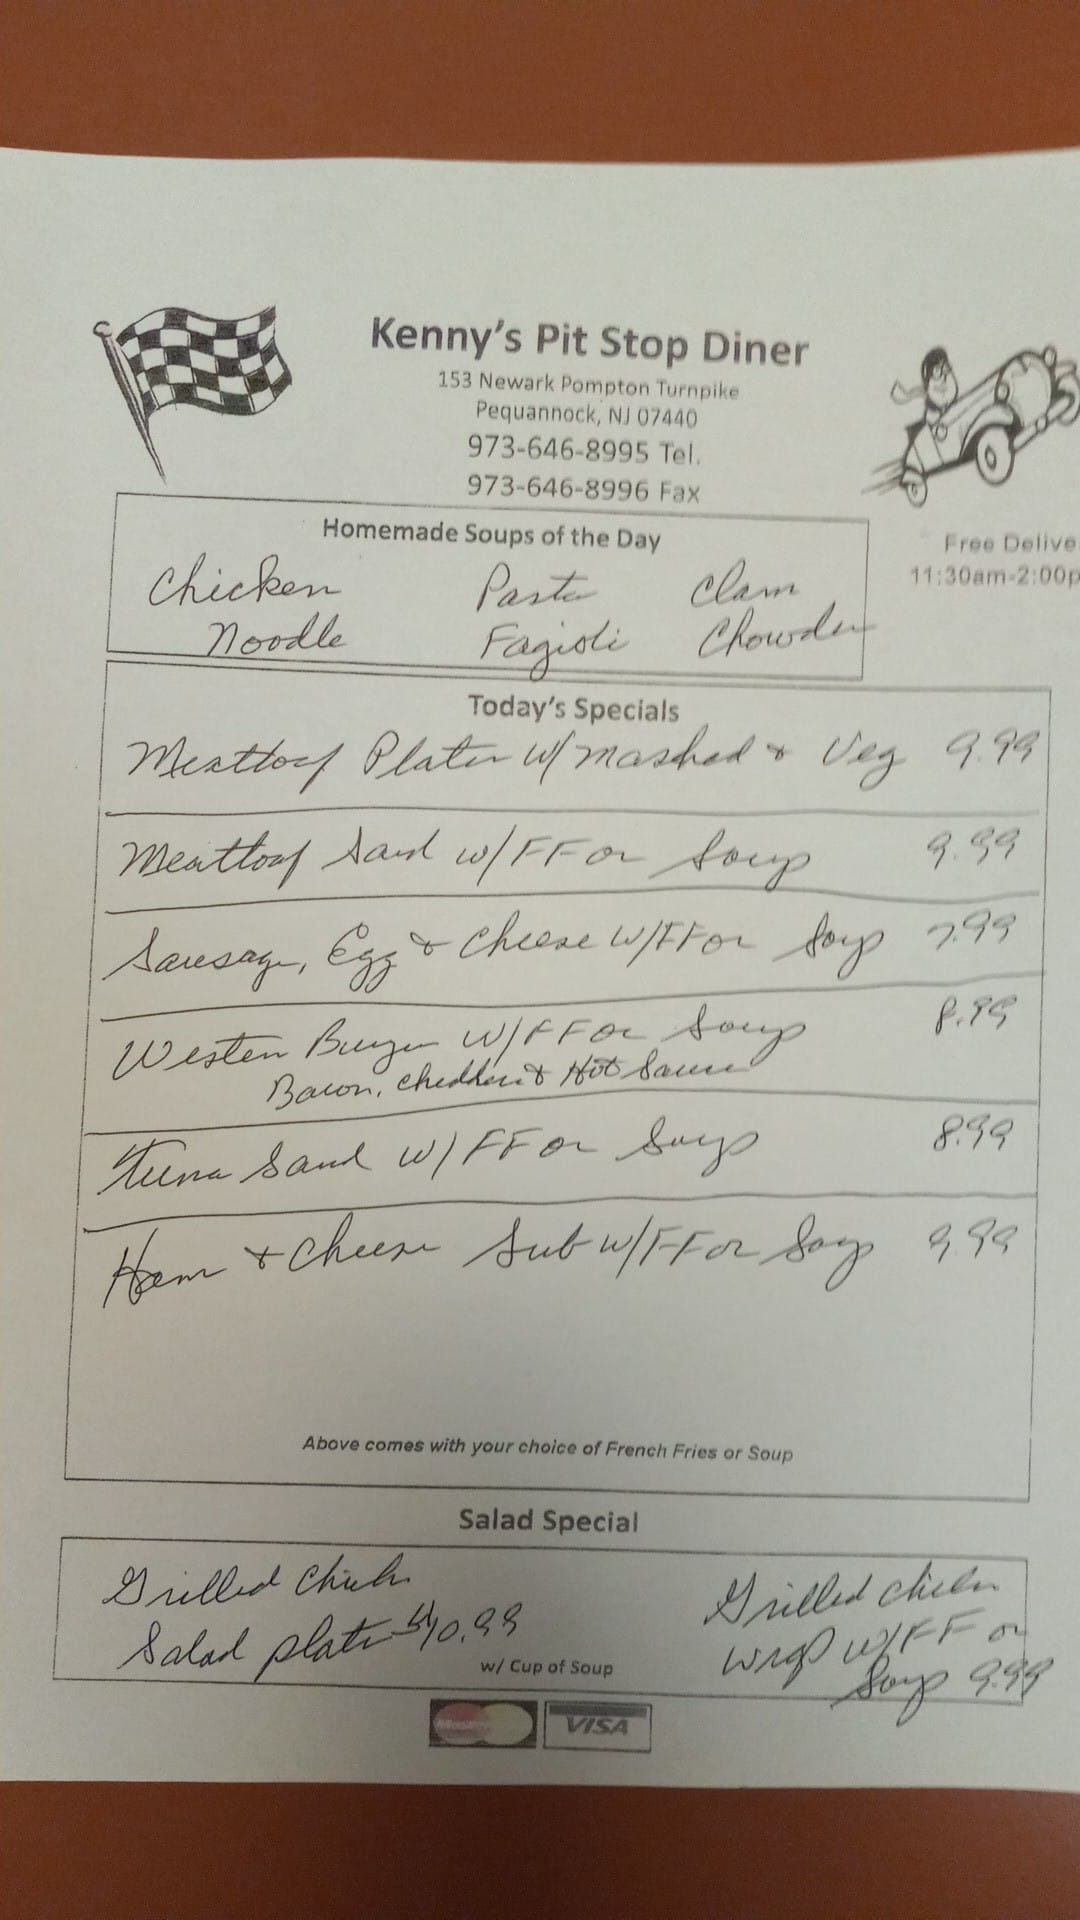 Kenny's Pit Stop Diner
153 Newark Pompton Turnpike
Pequannock, NJ 07440
973-646-8995 Tel.
973-646-8996 Fax
Free Delive
11:30am-2:00p
Homemade Soups of the Day
Chicken Pasta Clam
Noodle Fagioli Chowder
Today's Specials
Meatloaf Platter w/ mashed & Veg 9.99
Meatloaf Sand w/ FF or Soup 9.99
Sausage, Egg & Cheese w/ FF or Soup 7.99
Western Burger w/ FF or Soup 8.99
Bacon, Cheddar & Hot Sauce
Tuna Sand w/ FF or Soup 8.99
Ham & Cheese Sub w/ FF or Soup 9.99
Above comes with your choice of French Fries or Soup
Salad Special
Grilled Chicken
Salad plate $10.99
w/ Cup of Soup
Grilled Chicken
wrap w/ FF or
Soup 9.99
Master
VISA